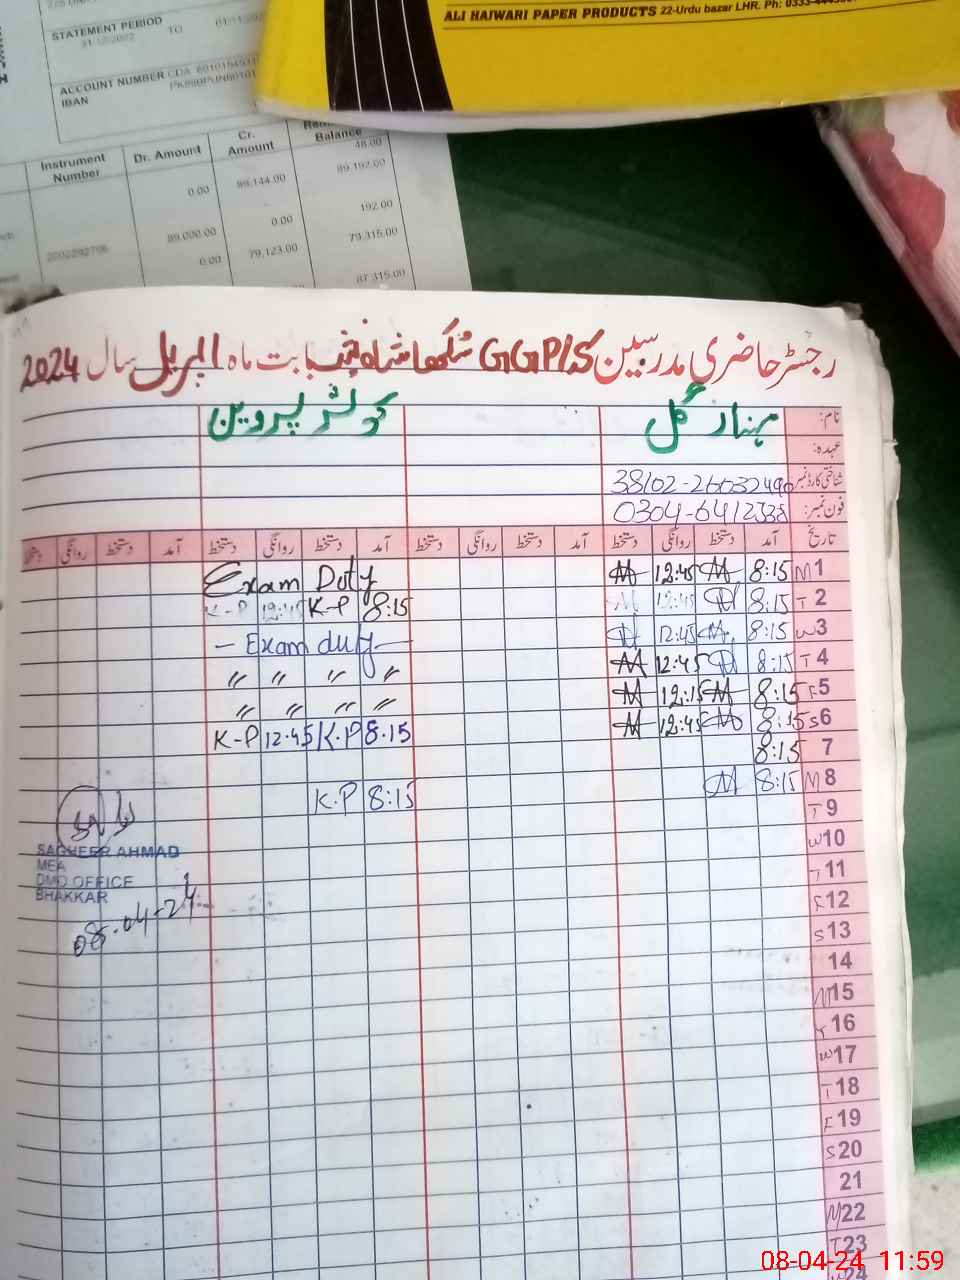 ALI HAJWARI PAPER PRODUCTS 22-Urdu bazar LHR. Ph: 0333-444
STATEMENT PERIOD TO
31-12-2022
ACCOUNT NUMBER CDA
IBAN
Instrument Number Dr. Amount Cr. Amount Balance
48.00
0.00 89,144.00 89,192.00
89,000.00 0.00 192.00
0.00 79,123.00 79,315.00
87,315.00
رجسٹر حاضری مدرسین GGP/S بابت ماہ اپریل سال 2024
نام: مہناز گل کوثر پروین
عہدہ:
شناختی کارڈ نمبر
فون نمبر: 0304-6412338
تاریخ آمد دستخط روانگی دستخط آمد دستخط روانگی دستخط آمد دستخط روانگی دستخط آمد دستخط روانگی دستخط
M 1 8:15 12:45 Exam Duty
T 2 8:15 12:45 8:15 K-P 12:45 K-P
W 3 8:15 12:45 - Exam duty -
T 4 8:15 12:45 〃 〃 〃 〃
F 5 8:15 12:15 〃 〃 〃 〃
S 6 8:15 12:45 8:15 K.P 12:45 K-P
7 8:15
M 8 8:15 8:15 K.P
T 9
W 10
T 11
F 12
S 13
14
M 15
T 16
W 17
T 18
F 19
S 20
21
M 22
T 23
W 24
SAGHEER AHMAD
MEA
DMO OFFICE
BHAKKAR
08-04-24
08-04-24 11:59